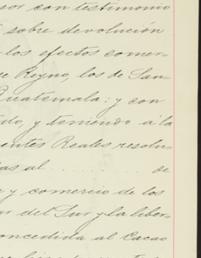 sor con testimonio
sobre devolución
los efectos comer-
Reyno, los de San-
Guatemala: y con
do, y teniendo á la
entes Reales resolu-
as al .......... de
y comercio de los
del Sur y la liber-
concedida al Cacao